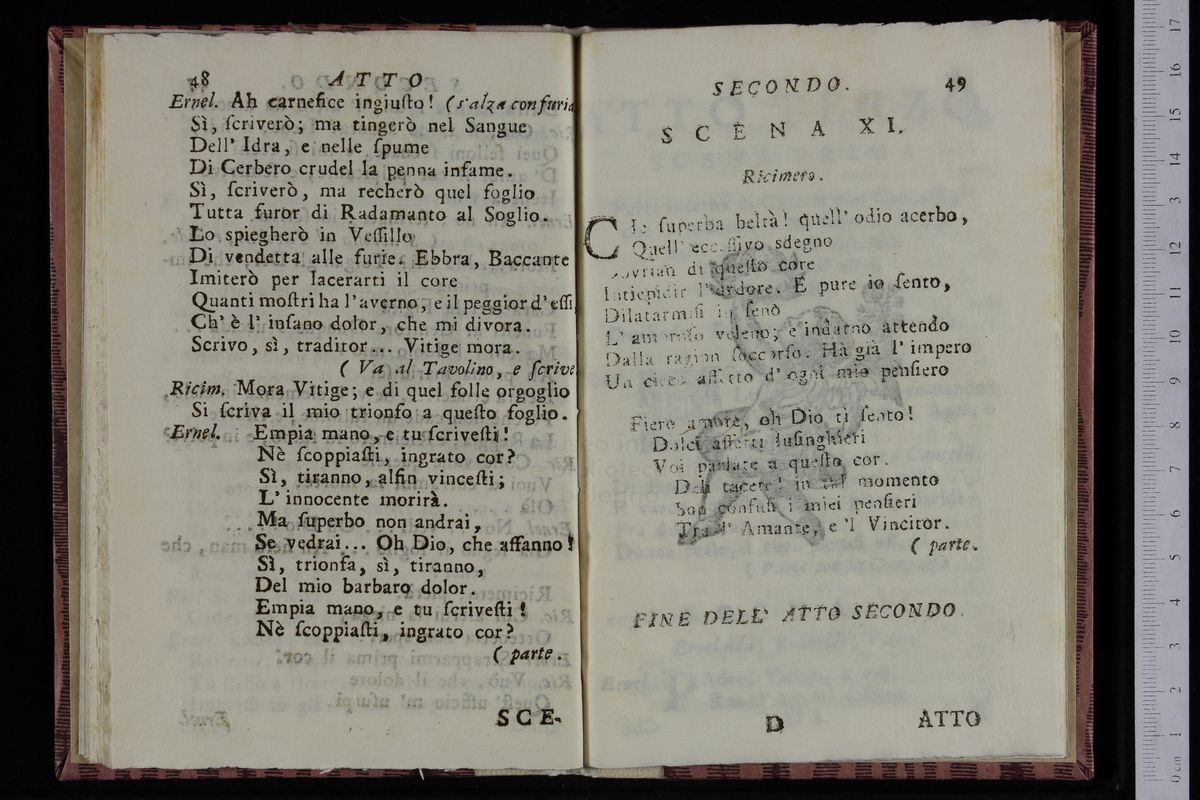 48 ATTO
Ernel. Ah carnefice ingiuſto! (s'alza con furia
Sì, ſcriverò; ma tingerò nel Sangue
Dell' Idra, e nelle ſpume
Di Cerbero crudel la penna infame.
Sì, ſcriverò, ma recherò quel foglio
Tutta furor di Radamanto al Soglio.
Lo spiegherò in Veſſillo
Di vendetta alle furie. Ebbra, Baccante
Imiterò per lacerarti il core
Quanti moſtri ha l'averno, e il peggior d'eſſi,
Ch' è l' inſano dolor, che mi divora.
Scrivo, sì, traditor... Vitige mora.
( Va al Tavolino, e ſcrive
Ricim. Mora Vitige; e di quel folle orgoglio
Si ſcriva il mio trionfo a queſto foglio.
Ernel. Empia mano, e tu ſcriveſti!
Nè ſcoppiaſti, ingrato cor?
Sì, tiranno, alfin vinceſti;
L' innocente morirà.
Ma ſuperbo non andrai,
Se vedrai... Oh Dio, che affanno!
Sì, trionfa, sì, tiranno,
Del mio barbaro dolor.
Empia mano, e tu ſcriveſti!
Nè ſcoppiaſti, ingrato cor?
( parte.
SCE-
SECONDO. 49
SCENA XI.
Ricimero.
Che ſuperba beltà! quell' odio acerbo,
Quell' ecceſſivo sdegno
Dovrian di queſto core
Intiepidir l'ardore. E pure io ſento,
Dilatarmiſi in ſenò
L' amoroſo veleno; e indarno attendo
Dalla ragion ſoccorſo. Hà già l' impero
Un cieco affetto d' ogni mio penſiero
Fiero amore, oh Dio ti ſento!
Dolci affetti luſinghieri
Voi parlate a queſto cor.
Deh tacete! in tal momento
Son confuſi i miei penſieri
Tra l' Amante, e 'l Vincitor.
( parte.
FINE DELL' ATTO SECONDO.
D ATTO